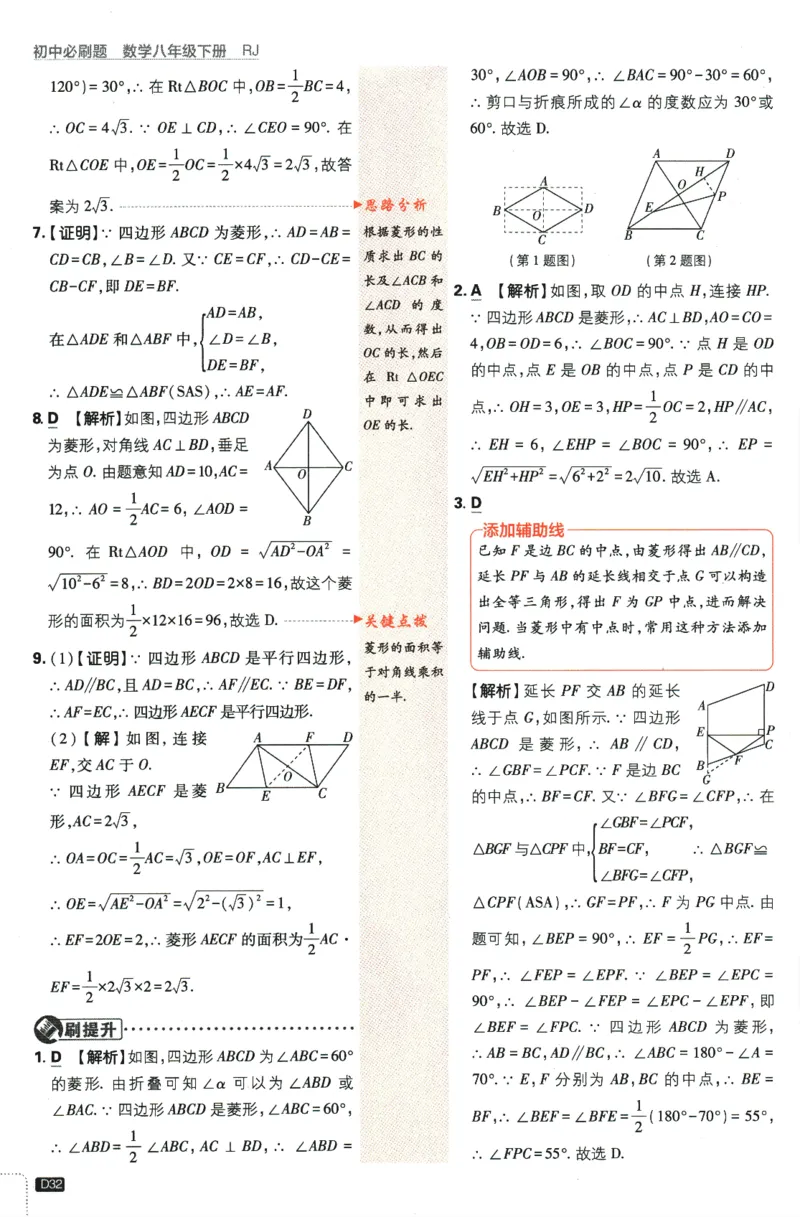 初中必刷题 数学八年级下册 RJ
120°)=30°,∴ 在 Rt△BOC 中,OB=1/2BC=4,
∴ OC=4√3. ∵ OE⊥CD,∴ ∠CEO=90°. 在
Rt△COE 中,OE=1/2OC=1/2×4√3=2√3,故答
案为2√3.
7.【证明】∵ 四边形 ABCD 为菱形,∴ AD=AB=
CD=CB,∠B=∠D. 又∵ CE=CF,∴ CD-CE=
CB-CF,即 DE=BF.
在△ADE 和△ABF 中,{AD=AB,
∠D=∠B,
DE=BF,
∴ △ADE≌△ABF(SAS),∴ AE=AF.
8. D 【解析】如图,四边形 ABCD
为菱形,对角线 AC⊥BD,垂足
为点 O. 由题意知 AD=10,AC=
12,∴ AO=1/2AC=6,∠AOD=
90°. 在 Rt△AOD 中, OD=√(AD²-OA²)=
√(10²-6²)=8,∴ BD=2OD=2×8=16,故这个菱
形的面积为1/2×12×16=96,故选 D.
D
A
O
C
B
9. (1)【证明】∵ 四边形 ABCD 是平行四边形,
∴ AD∥BC,且 AD=BC,∴ AF∥EC. ∵ BE=DF,
∴ AF=EC,∴ 四边形 AECF 是平行四边形.
(2)【解】如图,连接
EF,交 AC 于 O.
∵ 四边形 AECF 是菱
形,AC=2√3,
A F D
O
B E C
∴ OA=OC=1/2AC=√3,OE=OF,AC⊥EF,
∴ OE=√(AE²-OA²)=√(2²-(√3)²)=1,
∴ EF=2OE=2,∴ 菱形 AECF 的面积为1/2AC·
EF=1/2×2√3×2=2√3.
刷提升
1. D 【解析】如图,四边形 ABCD 为∠ABC=60°
的菱形. 由折叠可知∠α 可以为∠ABD 或
∠BAC. ∵ 四边形 ABCD 是菱形,∠ABC=60°,
∴ ∠ABD=1/2∠ABC,AC⊥BD,∴ ∠ABD=
D32
思路分析
根据菱形的性
质求出 BC 的
长及∠ACB 和
∠ACD 的度
数,从而得出
OC 的长,然后
在 Rt△OEC
中即可求出
OE 的长.
关键点拨
菱形的面积等
于对角线乘积
的一半.
30°,∠AOB=90°,∴ ∠BAC=90°-30°=60°,
∴ 剪口与折痕所成的∠α 的度数应为 30°或
60°. 故选 D.
A
B O D
C
(第1题图)
A D
H
O
P
E
B C
(第2题图)
2. A 【解析】如图,取 OD 的中点 H,连接 HP.
∵ 四边形 ABCD 是菱形,∴ AC⊥BD,AO=CO=
4,OB=OD=6,∴ ∠BOC=90°. ∵ 点 H 是 OD
的中点,点 E 是 OB 的中点,点 P 是 CD 的中
点,∴ OH=3,OE=3,HP=1/2OC=2,HP∥AC,
∴ EH=6,∠EHP=∠BOC=90°,∴ EP=
√(EH²+HP²)=√(6²+2²)=2√10. 故选 A.
3. D
添加辅助线
已知 F 是边 BC 的中点,由菱形得出 AB∥CD,
延长 PF 与 AB 的延长线相交于点 G 可以构造
出全等三角形,得出 F 为 GP 中点,进而解决
问题. 当菱形中有中点时,常用这种方法添加
辅助线.
【解析】延长 PF 交 AB 的延长
线于点 G,如图所示. ∵ 四边形
ABCD 是菱形,∴ AB∥CD,
∴ ∠GBF=∠PCF. ∵ F 是边 BC
D
A
E P
C
B F
G
的中点,∴ BF=CF. 又∵ ∠BFG=∠CFP,∴ 在
△BGF 与△CPF 中,{∠GBF=∠PCF,
BF=CF,
∠BFG=∠CFP,
∴ △BGF≌
△CPF(ASA),∴ GF=PF,∴ F 为 PG 中点. 由
题可知,∠BEP=90°,∴ EF=1/2PG,∴ EF=
PF,∴ ∠FEP=∠EPF. ∵ ∠BEP=∠EPC=
90°,∴ ∠BEP-∠FEP=∠EPC-∠EPF,即
∠BEF=∠FPC. ∵ 四边形 ABCD 为菱形,
∴ AB=BC,AD∥BC,∴ ∠ABC=180°-∠A=
70°. ∵ E,F 分别为 AB,BC 的中点,∴ BE=
BF,∴ ∠BEF=∠BFE=1/2(180°-70°)=55°,
∴ ∠FPC=55°. 故选 D.